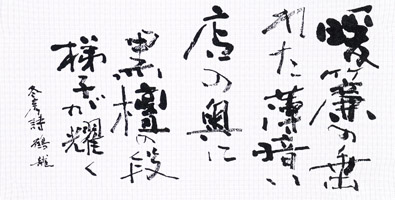 暖簾の垂
れた薄暗い
店の奥に
黒檀の段
梯子が耀く
冬彦詩 鶴雖